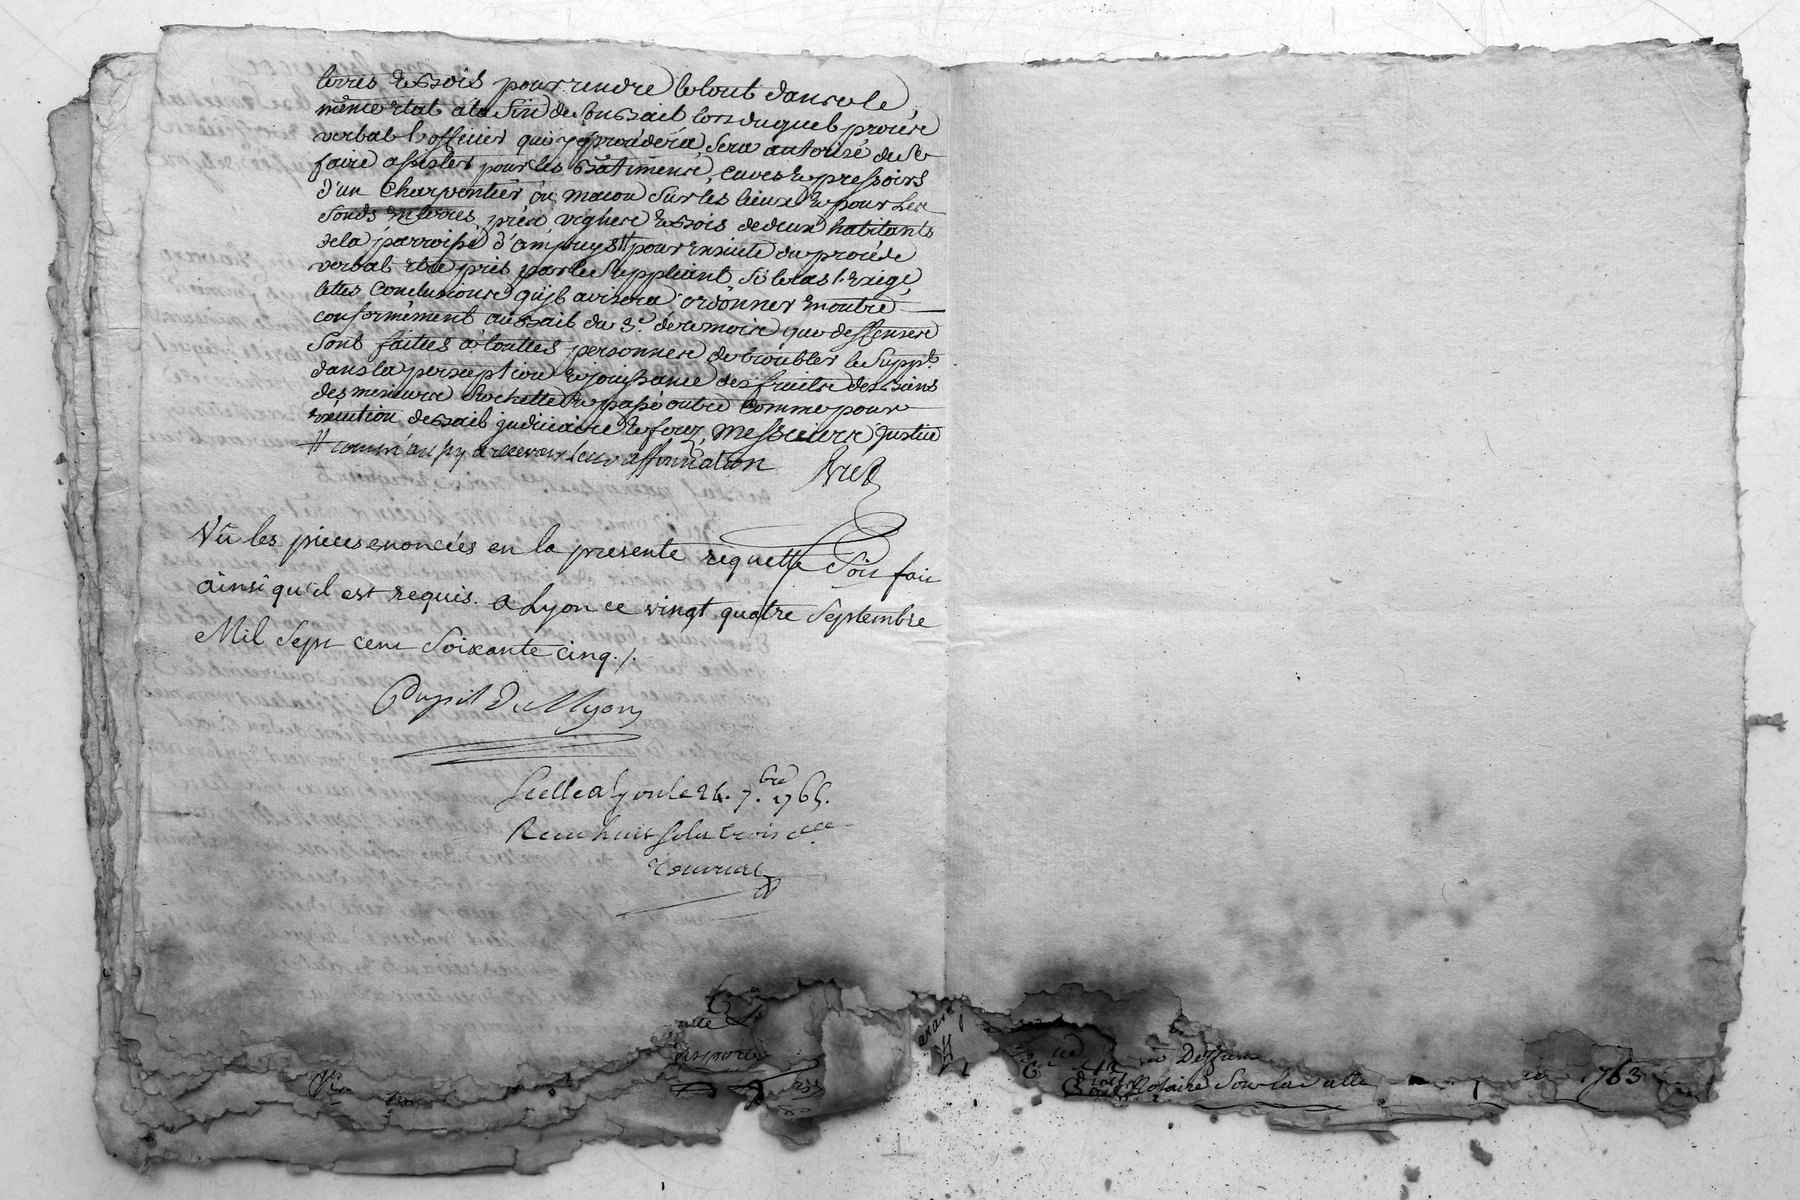 terres et bois pour rendre le tout dans le
même etat a la fin de son bail lors duquel procès
verbal l'officier qui y procedera sera autorisé de se
faire assister pour les bâtiments, cuves et pressoirs
d'un charpentier ou macon sur les lieux et pour les
fonds en terres, près vignes et bois de deux habitants
de la parroisse d'ampuys # pour ensuite du procede
verbal etre pris par le suppliant si le cas l'exige
telles conclusions qu'il avisera ordonner en outre
conformement au bail du 3e. de ce mois que deffenses
sont faittes a touttes personnes de troubler le Supplt.
dans la perception et jouissance des fruits des biens
des mineurs Rochette et passé outre comme pour
execution de bail judiciaire et ferez, Messieurs justice
# comm' au ssy a recevoir leur affirmation
Vû les pieces enoncées en la presente requette Soit fait
ainsi qu'il est requis. a Lyon ce vingt quatre Septembre
Mil Sept cent Soixante cinq ./.
Pupil De Myons
Scelle a Lyon le 24. 7.bre 1765.
Receu huit sols trois d
notaire sous la datte 763